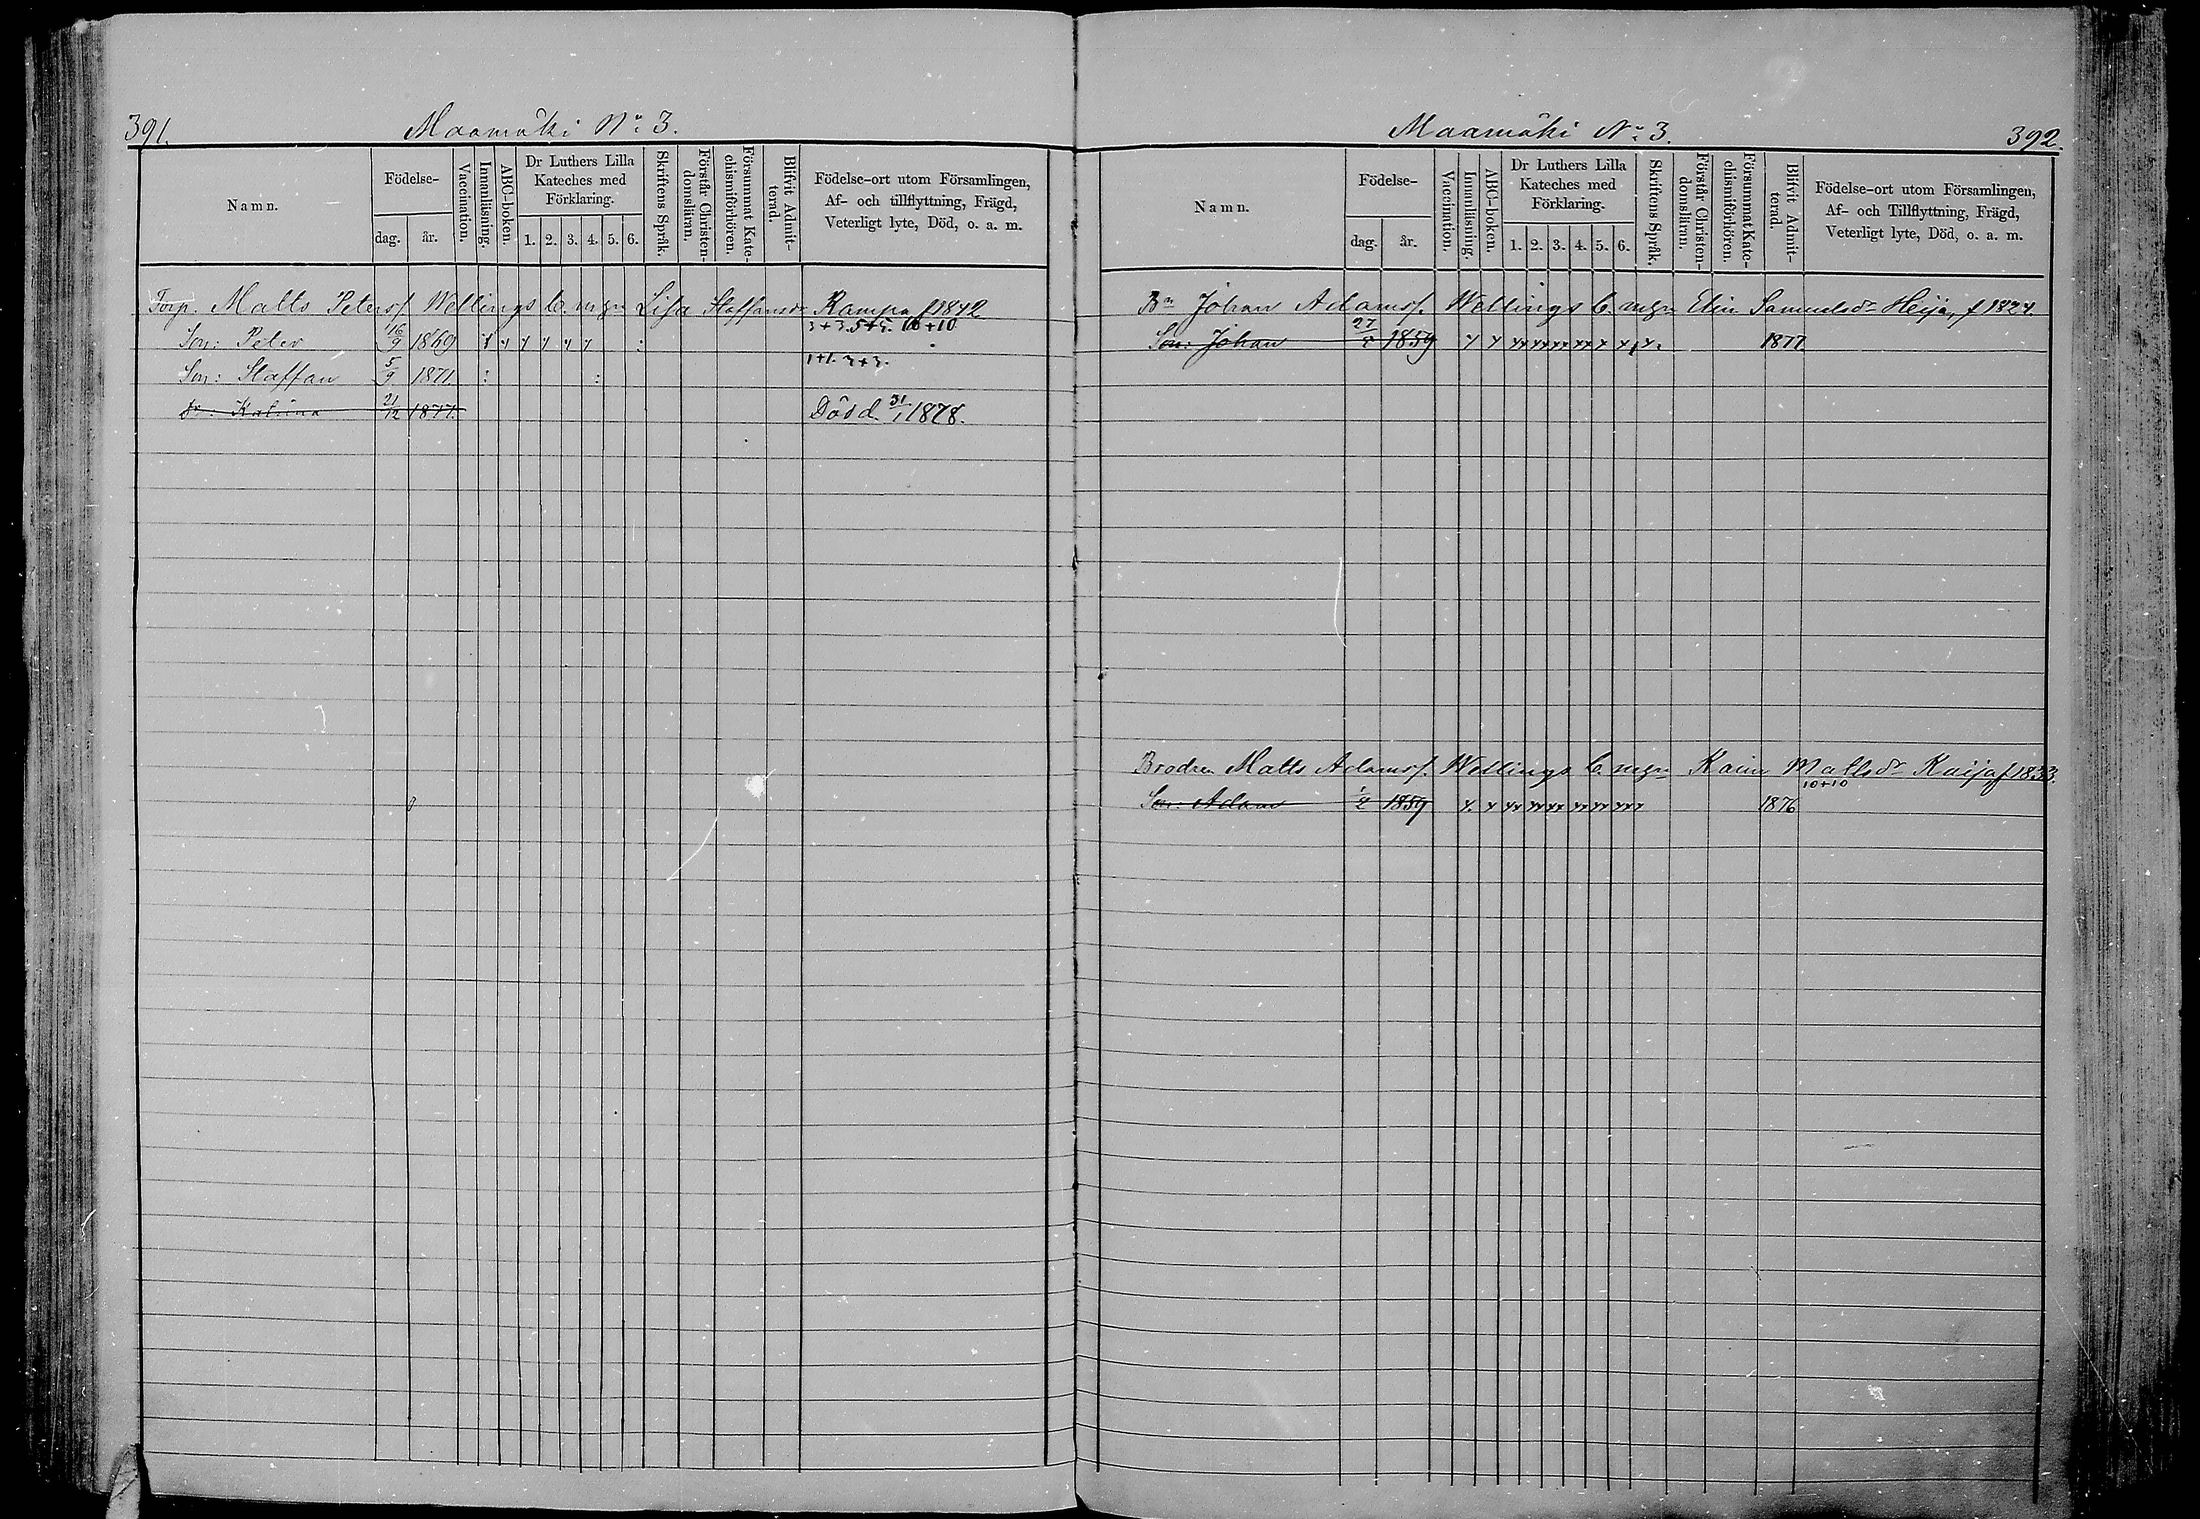 391.
Maamäki No 3.
Namn.
Födelse-
dag.
år.
Vaccination.
Innanläsning.
ABC-boken.
Dr Luthers Lilla
Kateches med
Förklaring.
1. 2. 3. 4. 5. 6.
Skriftens Språk.
Förstår Christen-
domsläran.
Försummat Kate-
chismiförhören.
Blifvit Admit-
terad.
Födelse-ort utom Församlingen,
Af- och tillflyttning, Frägd,
Veterligt lyte, Död, o. a. m.
Torp. Matts Peterss. Wellings C. m gn Lisa Staffansdr Rampa f 1842
3+3. 5+5. 10+10
Son: Peter 16/9 1869
1+1. 3+3.
Son: Staffan 5/9 1871.
dr: Katrina 21/12 1877. Död d. 31/1 1878.
Maamäki No 3.
392.
Namn.
Födelse-
dag.
år.
Vaccination.
Innanläsning.
ABC-bokon.
Dr Luthers Lilla
Kateches med
Förklaring.
1. 2. 3. 4. 5. 6.
Skriftens Språk.
Förstår Christen-
domsläran.
Försummat Kate-
chismiförhören.
Blifvit Admit-
terad.
Födelse-ort utom Församlingen,
Af- och Tillflyttning, Frägd,
Veterligt lyte, Död, o. a. m.
Bn Johan Adamss. Wellings C. m gn Elin Samuelsdr Heija, f 1824.
Son: Johan 27/5 1859 1877
Brodren Matts Adamss. Wellings C. m gn Karin Mattsdr Kaija f 1833.
10+10
Son: Adam 1/2 1859 1876